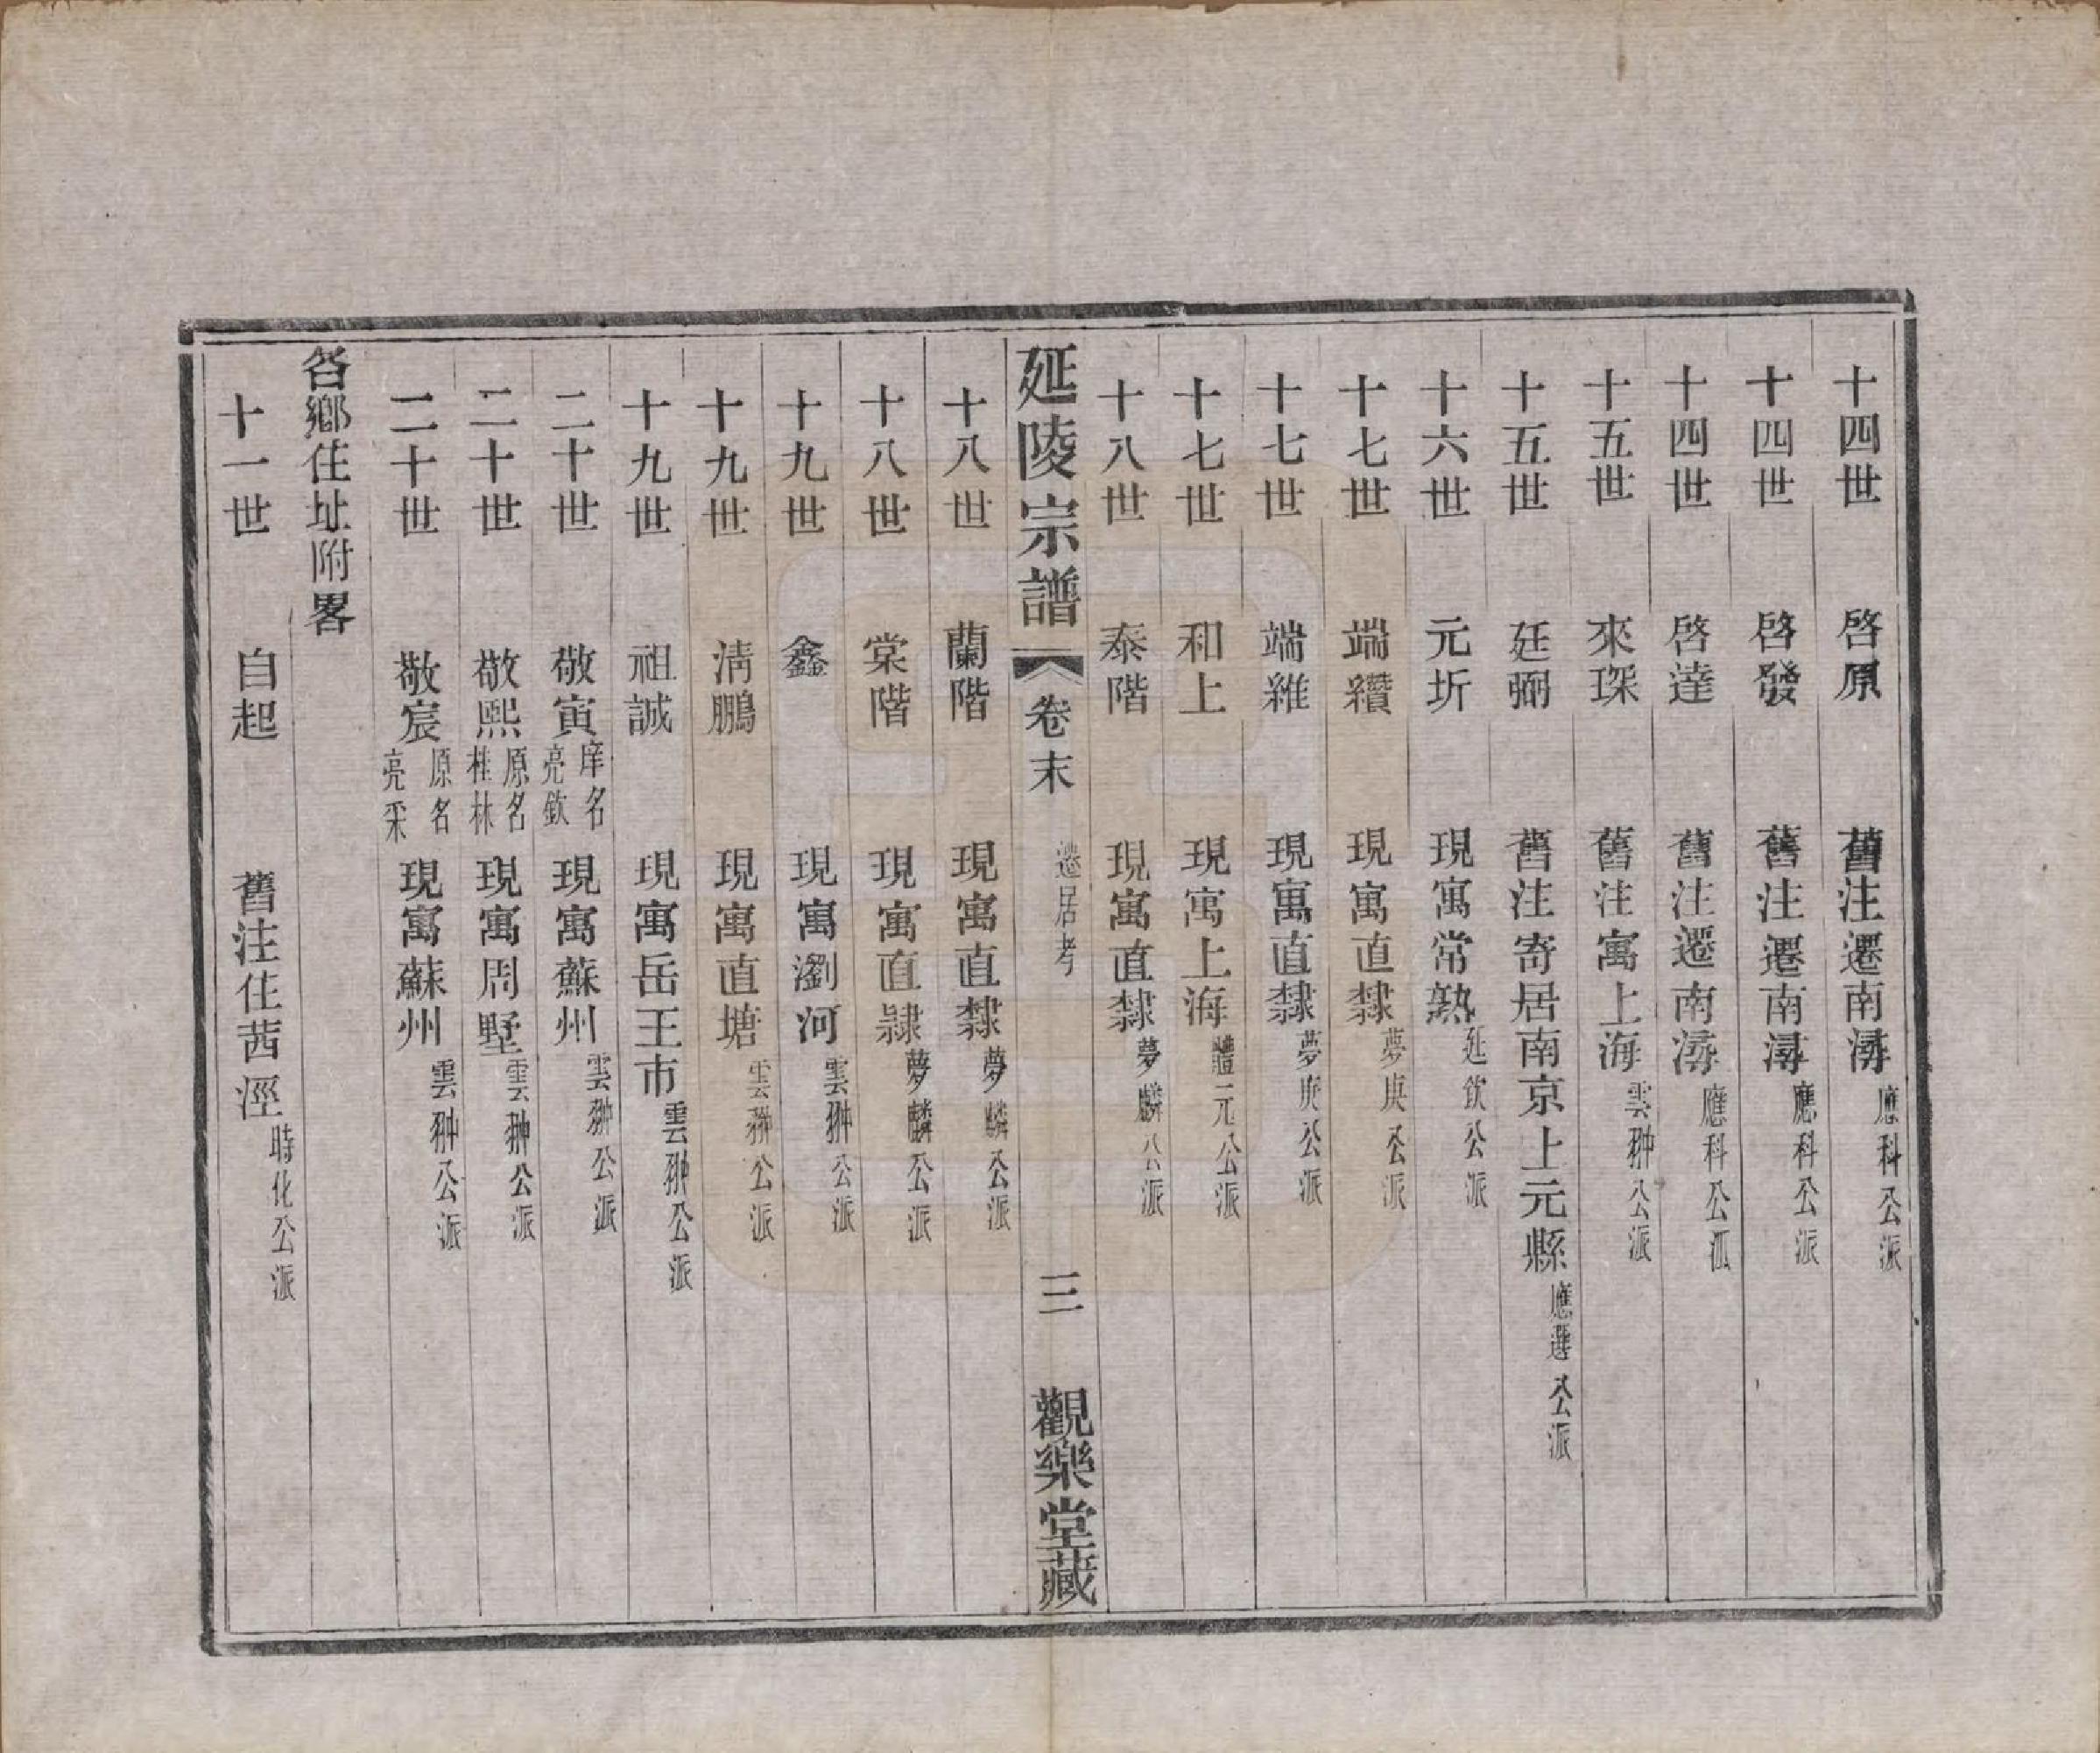 十四世　啓原　舊注遷南潯應科公派
十四世　啓發　舊注遷南潯應科公派
十四世　啓達　舊注遷南潯應科公派
十五世　來琛　舊注寓上海雲翀公派
十五世　廷弼　舊注寄居南京上元縣應選公派
十六世　元圻　現寓常熟延欽公派
十七世　端纘　現寓直隸夢庚公派
十七世　端維　現寓直隸夢庚公派
十七世　和上　現寓上海體元公派
十八世　泰階　現寓直隸夢麟公派
延陵宗譜　卷末　遷居考　三　觀樂堂藏
十八世　蘭階　現寓直隸夢麟公派
十八世　棠階　現寓直隸夢麟公派
十九世　鑫　現寓瀏河雲翀公派
十九世　清鵬　現寓直塘雲翀公派
十九世　祖誠　現寓岳王市雲翀公派
二十世　敬寅庠名亮欽　現寓蘇州雲翀公派
二十世　敬熙原名桂林　現寓周墅雲翀公派
二十世　敬宸原名亮采　現寓蘇州雲翀公派
各鄉住址附畧
十一世　自起　舊注住茜涇時化公派